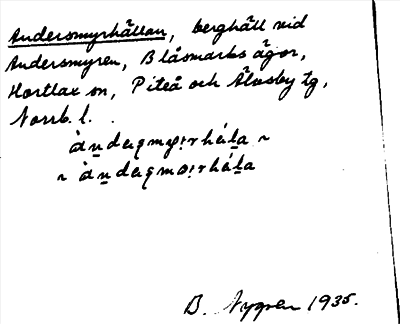 Andersmyrhällan, berghäll vid
Andersmyren, Blåsmarks ägor,
Hortlax sn, Piteå och Älvsby tg,
Norrb. l.
àn̲dəʂmyːrhál̲a ~
~ àn̲dəʂmøːrhál̲a
B. Nygren 1935.